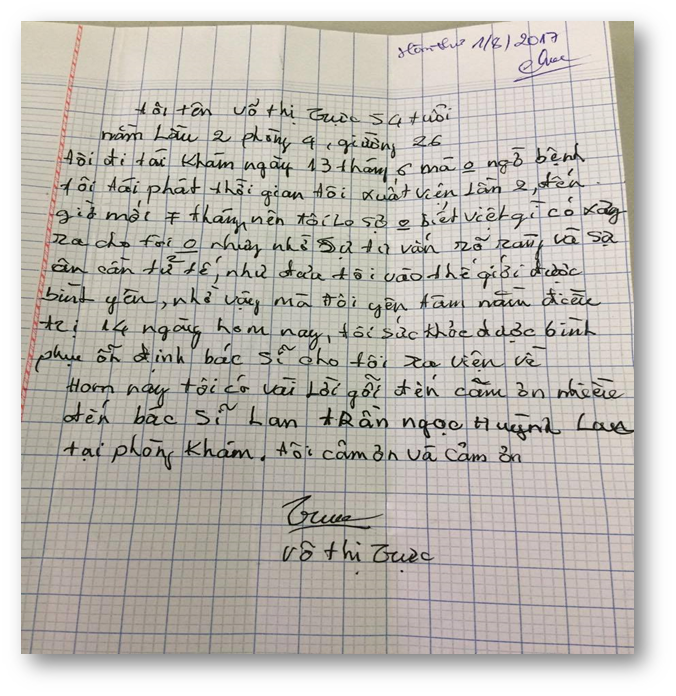 Hòm thư 1/8/2017
tôi tên võ thị Trực 54 tuổi
nằm Lầu 2 phòng 4, giường 26
tôi đi tái khám ngày 13 tháng 6 mà o ngờ bệnh
tôi tái phát thời gian tôi xuất viện Lần 2, đến
giờ mới 7 tháng, nên tôi Lo sợ o biết việt gì có xảy
ra cho tôi o nhưng nhờ sự tư vấn rõ ràng và sự
ân cần tử tế, như đưa tôi vào thế giới được
bình yên, nhờ vậy mà tôi yên tâm nằm điều
trị 14 ngày hôm nay, tôi sức khỏe được bình
phục ổn định bác sĩ cho tôi ra viện về
Hom nay tôi có vài Lời gỗi đến cảm ơn nhiều
đến bác sĩ Lan tRần ngọc Huỳnh Lan
tại phòng khám. tôi cảm ơn và cảm ơn
võ thị Trực